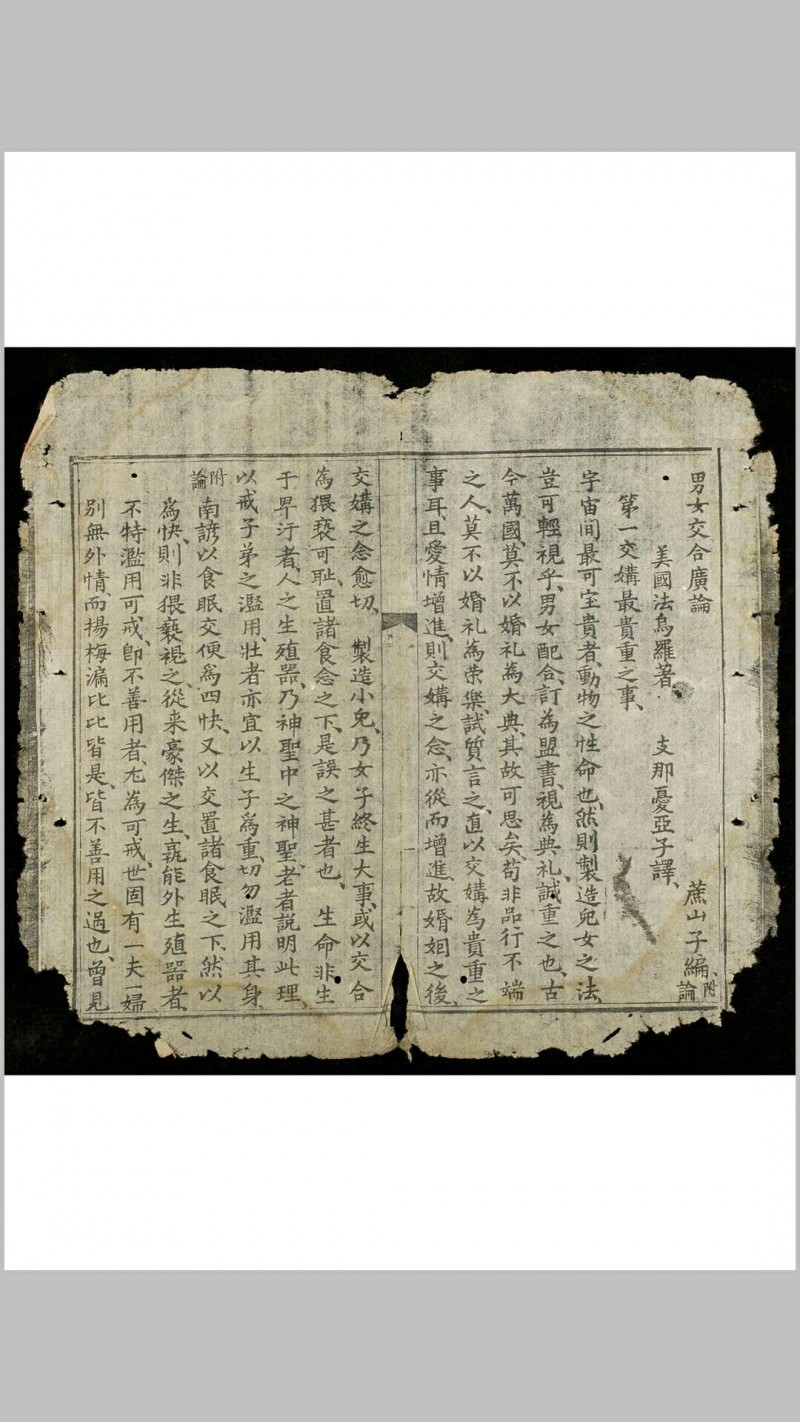 男女交合廣論
美國法烏羅著 支那憂亞子譯、蔗山子編、附論
第一交媾最貴重之事、
宇宙間最可宝貴者、動物之性命也、然則製造兒女之法、
豈可輕視乎、男女配合、訂為盟書、視為典礼、誠重之也、古
今萬國、莫不以婚礼為大典、其故可思矣、苟非品行不端
之人、莫不以婚礼為荣樂、試質言之、直以交媾為貴重之
事耳、且愛情增進、則交媾之念、亦從而增進、故婚姻之後、
交媾之念愈切、 製造小兒、乃女子終生大事、或以交合
為猥褻可耻、置諸食念之下、是誤之甚者也、 生命非生
于卑汙者、人之生殖器、乃神聖中之神聖、老者説明此理、
以戒子弟之濫用、壯者亦宜以生子爲重、切勿濫用其身、
附論 南諺以食眠交便爲四快、又以交置諸食眠之下、然以
爲快、則非猥褻視之、從来豪傑之生、孰能外生殖器者、
不特濫用可戒、卽不善用者、尤為可戒、世固有一夫一婦
別無外情、而揚梅瀉比比皆是、皆不善用之過也、曾見